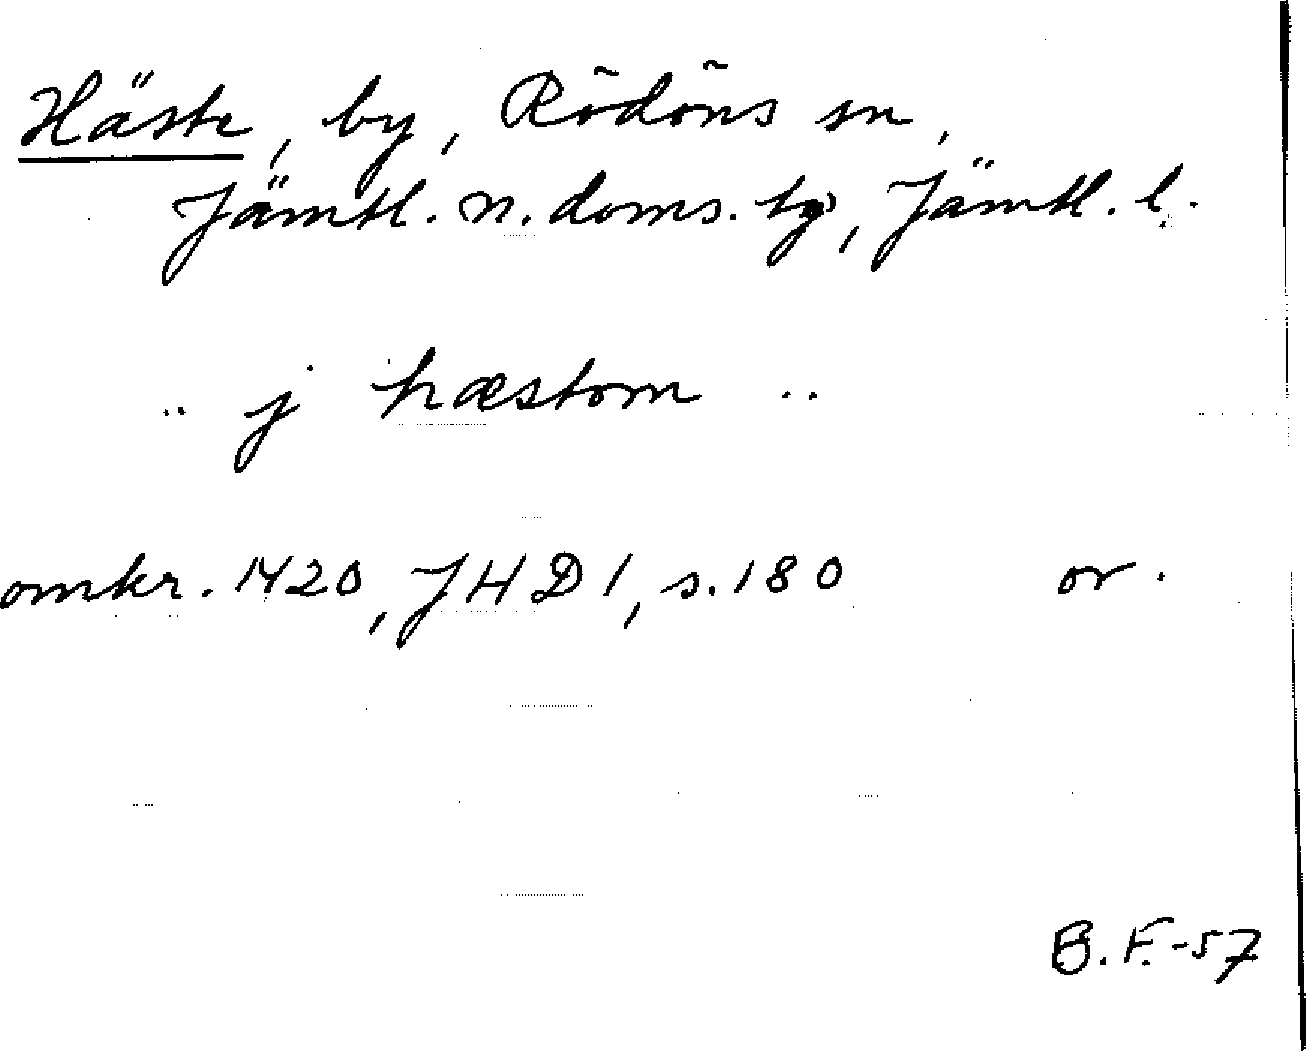 Häste, by, Rödöns sn,
Jämtl. n. doms. tg, Jämtl. l.
.. j hæstom ..
omkr. 1420, JHD 1, s. 180 or.
B. F. -57